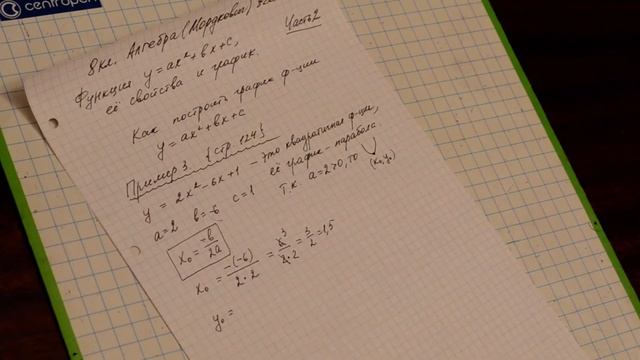 centropen
8 кл. Алгебра (Мордкович)
Часть 2
Функция y=ax²+bx+c,
её свойства и график.
Как построить график ф-ции
y=ax²+bx+c
Пример 3 {стр. 124}
y = 2x²-6x+1 - это квадратичная ф-ция,
её график - парабола.
a=2 b=-6 c=1 Т.к. a=2>0, то
(x₀,y₀)
x₀ = -b/2a
x₀ = -(-6)/2·2 = 6³/2·2 = 3/2 = 1,5
y₀ =